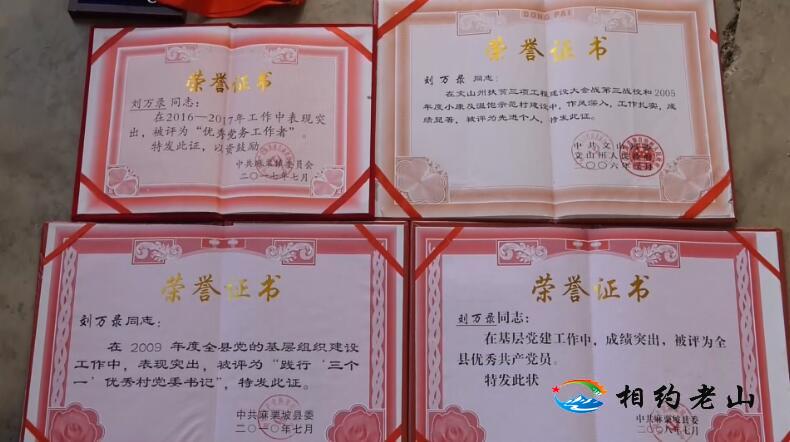 荣誉证书
刘万录同志：
在2016—2017年工作中表现突
出，被评为“优秀党务工作者”。
特发此证，以资鼓励
中共麻栗镇委员会
二〇一七年七月
DONG FAI
荣誉证书
刘万录同志：
在文山州扶贫三项工程建设大会战第三战役和2005
年度小康及温饱示范村建设中，作风深入，工作扎实，成
绩显著，被评为先进个人，特发此证。
中共文山
文山州人民
二〇〇六年
荣誉证书
刘万录同志：
在 2009 年度全县党的基层组织建设
工作中，表现突出，被评为“践行‘三个
一’优秀村党委书记”，特发此证。
中共麻栗坡县委
二〇一〇年七月
荣誉证书
刘万录同志：
在基层党建工作中，成绩突出，被评为全
县优秀共产党员。
特发此状
中共麻栗坡县委
二〇〇八年七月
相约老山